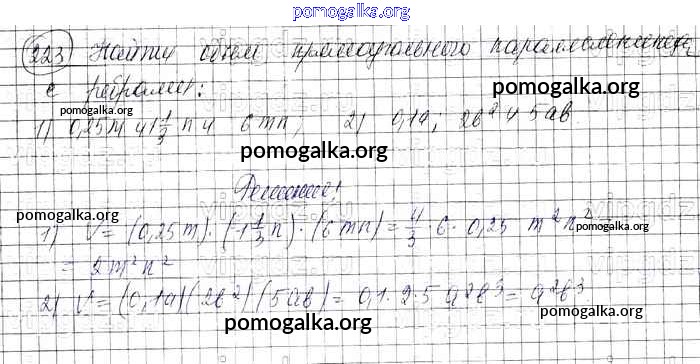 pomogalka.org
223 Найти объем прямоугольного параллелепипеда
pomogalka.org
с ребрами:
pomogalka.org
1) 0,25m и 1 1/3 n и 6mn; 2) 0,1a; 2b² и 5ab
pomogalka.org
Решение:
pomogalka.org
1) V = (0,25m)·(1 1/3 n)·(6mn) = 4/3 · 6 · 0,25 m²n² =
= 2m²n²
2) V = (0,1a)(2b²)(5ab) = 0,1·2·5 a²b³ = a²b³
pomogalka.org
pomogalka.org